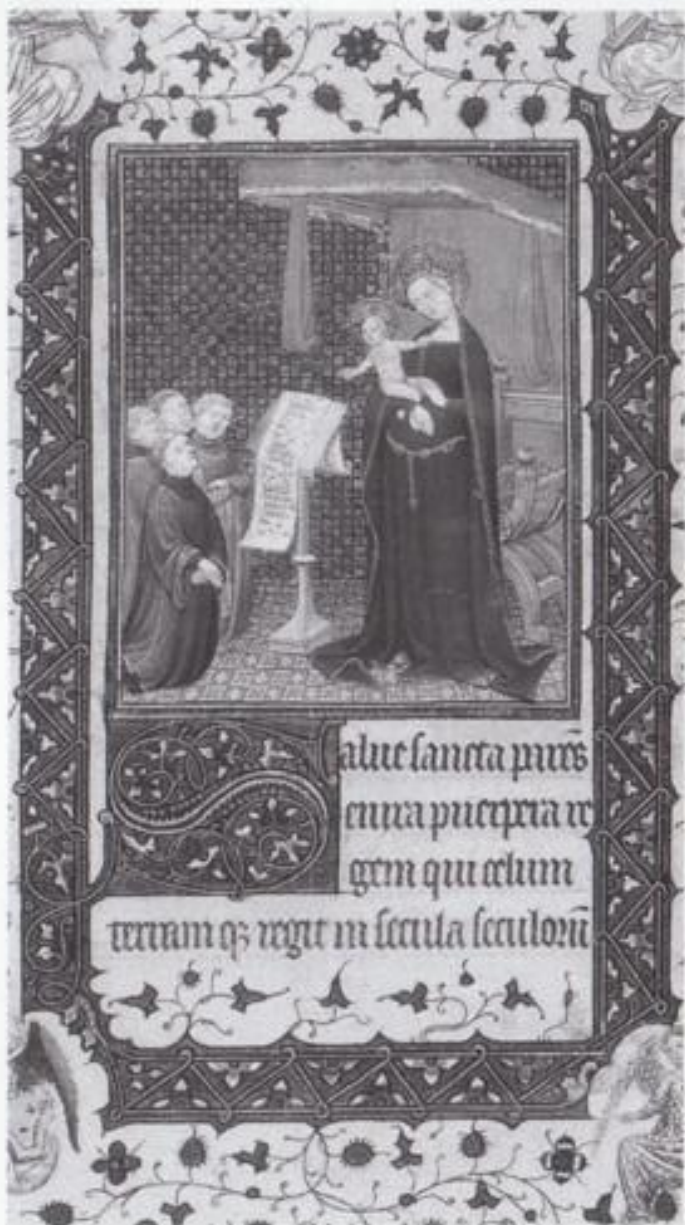 Salue sancta pares
enixa puerpera re
gem qui celum
terram qz regit in secula seculorū